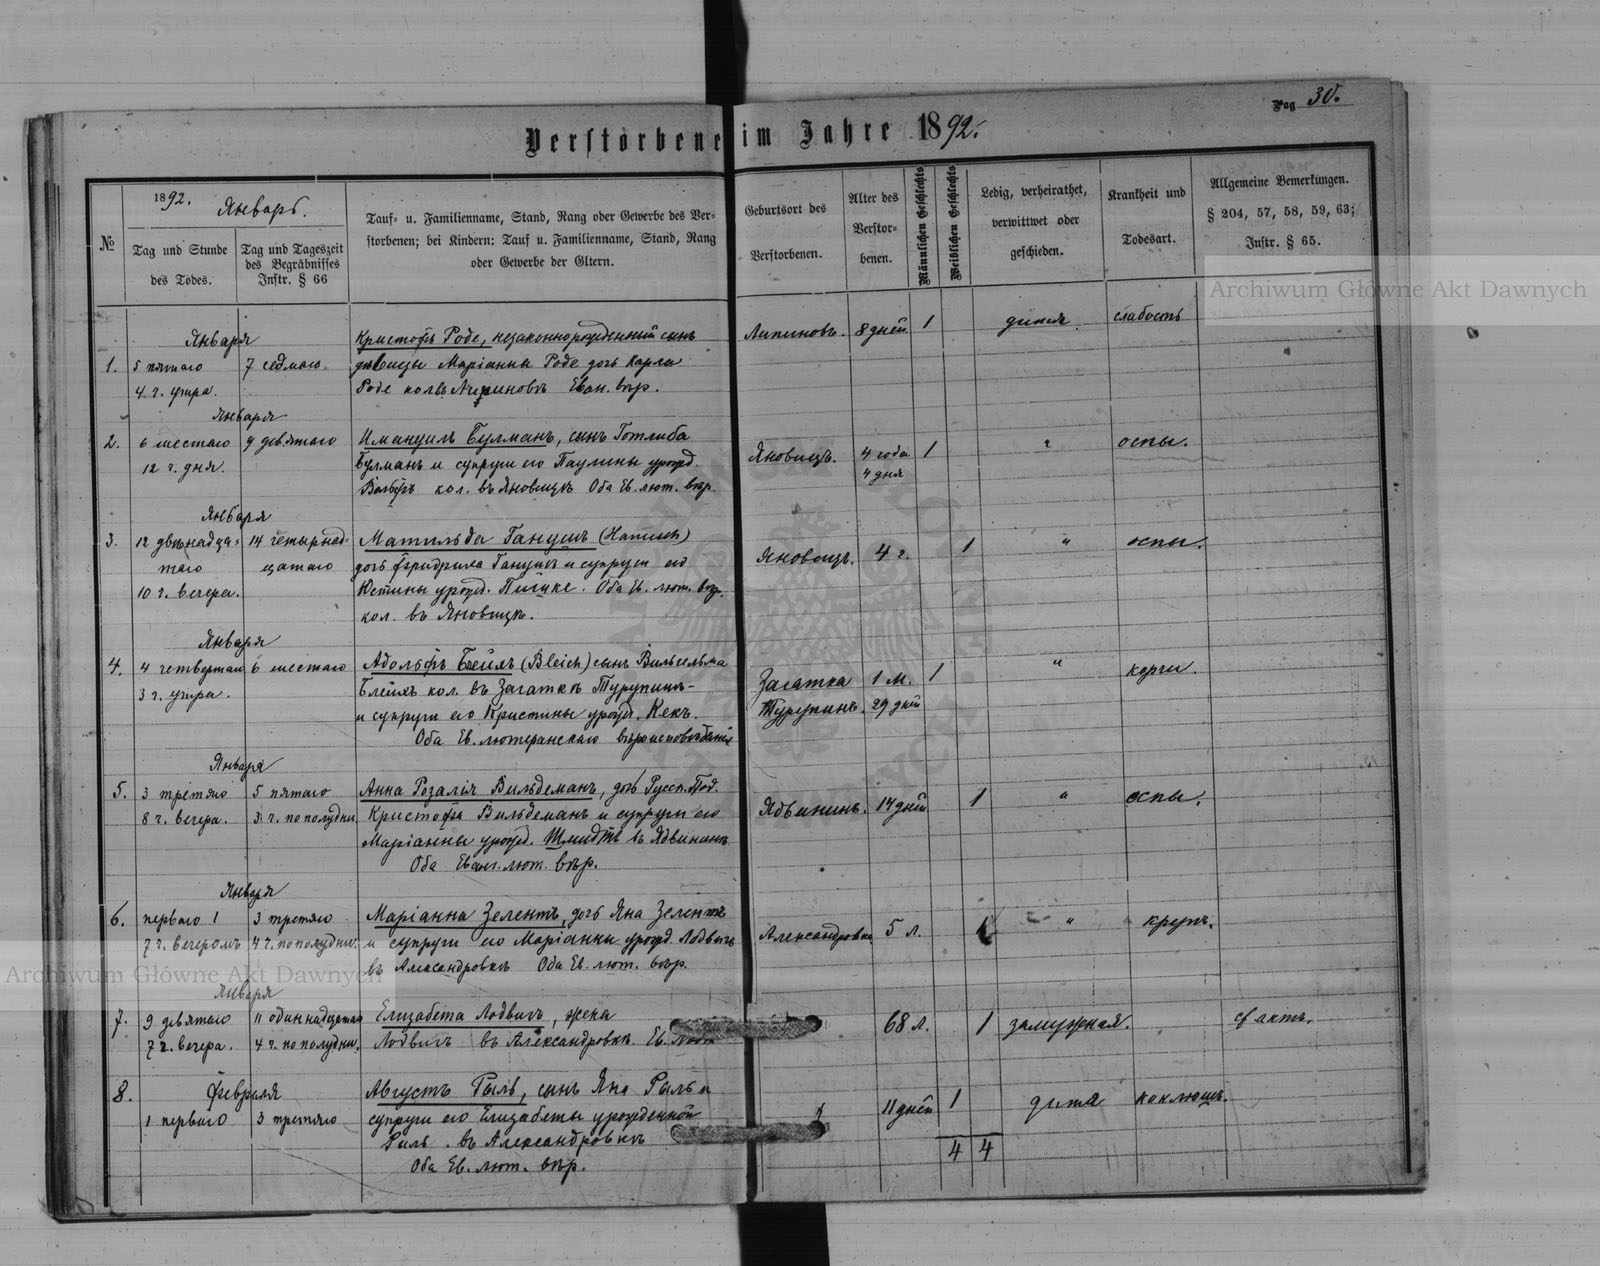 Pag 30.
Verstorbene im Jahre 1892.
№
1892. Январь.
Tag und Stunde
des Todes.
Tag und Tageszeit
des Begräbnisses
Instr. § 66
Tauf- u. Familienname, Stand, Rang oder Gewerbe des Ver-
storbenen; bei Kindern: Tauf u. Familienname, Stand, Rang
oder Gewerbe der Eltern.
Geburtsort des
Verstorbenen.
Alter des
Verstor-
benen.
Männlichen Geschlechts
Weiblichen Geschlechts
Ledig, verheirathet,
verwittwet oder
geschieden.
Krankheit und
Todesart.
Allgemeine Bemerkungen.
§ 204, 57, 58, 59, 63;
Instr. § 65.
Archiwum Główne Akt Dawnych
Января
1. 5 пятаго 7 седмаго
4 г. утра.
Кристофъ Роде, незаконнорожденный сынъ
дѣвицы Маріанны Роде дочь Карла
Роде кол. въ Липиновѣ Еван. вѣр.
Липиновъ. 8 дней 1 дитя. слабость
Января
2. 6 шестаго 9 девятаго
12 г. дня.
Имануилъ Булманъ, сынъ Готлиба
Булманъ и супруги его Паулины урожд.
Вольфъ кол. въ Яновицѣ Оба Ев. лют. вѣр.
Яновицъ. 4 года 1 " оспы.
4 дня
Января
3. 12 двѣнадца- 14 четырнад-
таго цатаго
10 г. вечера.
Матильда Ганушъ (Hanusch)
дочь Фридриха Ганушъ и супруги его
Юстины урожд. Пишке. Оба Ев. лют. вѣр.
кол. въ Яновицѣ.
Яновицъ. 4 г. 1 " оспы.
Января
4. 4 четвертаго 6 шестаго
3 г. утра.
Адольфъ Блейхъ (Bleich) сынъ Вильгельма
Блейхъ кол. въ Загаткѣ Турупинъ-
и супруги его Кристины урожд. Кекъ.
Оба Ев. лютеранскаго вѣроисповѣданія
Загатка 1 м. 1 " корчи.
Турупинъ. 29 дней
Января
5. 3 третяго 5 пятаго
8 г. вечера. 3 г. пополудни.
Анна Розалія Вильдеманъ, дочь Русск. Под.
Кристофа Вильдеманъ и супруги его
Маріанны урожд. Шмидтъ въ Ядвининѣ
Оба Еванг. лют. вѣр.
Ядвининъ. 14 дней 1 " оспы.
Января
6. перваго 1 3 третяго
7 г. вечеромъ 4 г. пополудни.
Маріанна Зелентъ, дочь Яна Зелентъ
и супруги его Маріанны урожд. Лодвигъ
въ Александровкѣ Оба Ев. лют. вѣр.
Александровка 5 л. 1 " крупъ.
Archiwum Główne Akt Dawnych
Января
7. 9 девятаго 11 одиннадцатаго
7 г. вечера. 4 г. пополудни.
Елизабета Лодвигъ, жена
Лодвигъ въ Александровкѣ. Ев. лют.
68 л. 1 замужная.
Февраля
8. 1 перваго 3 третяго
Августъ Рыль, сынъ Яна Рыль и
супруги его Елизабеты урожденной
Рыль. въ Александровкѣ
Оба Ев. лют. вѣр.
11 дней 1 дитя коклюшъ.
4 4